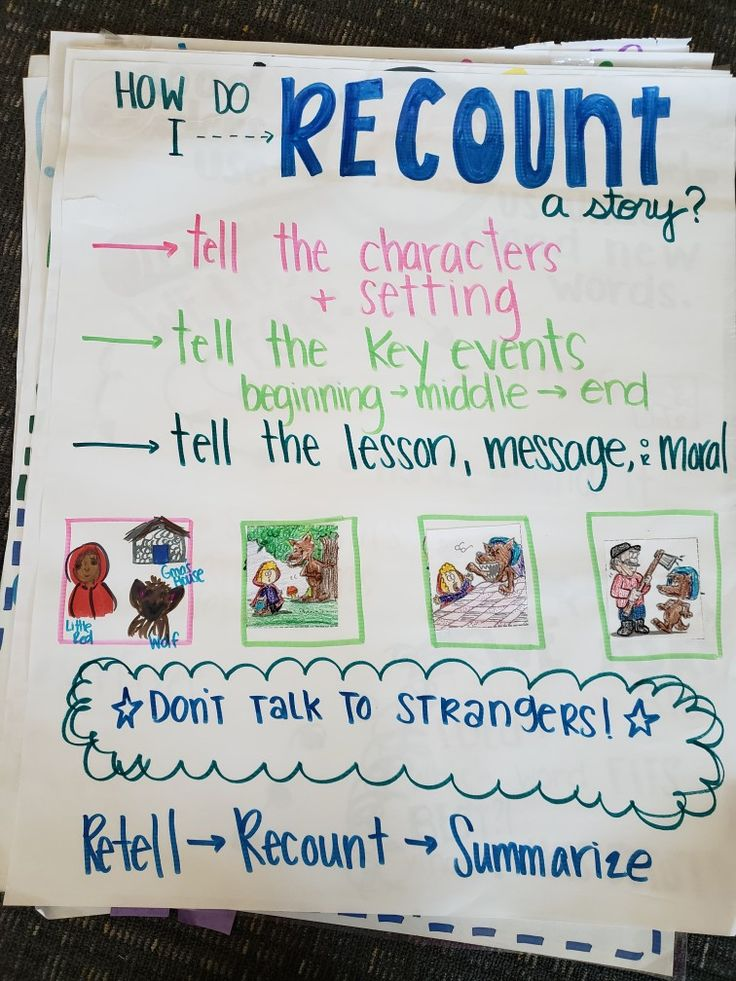 HOW DO
I ----> RECOUNT
a story?
→ tell the characters
+ setting
→ tell the Key events
beginning → middle → end
→ tell the lesson, message, OR Moral
Gmas House
Little Red
Wolf
☆ DON'T TALK TO STRANGERS! ☆
Retell → Recount → Summarize
words.